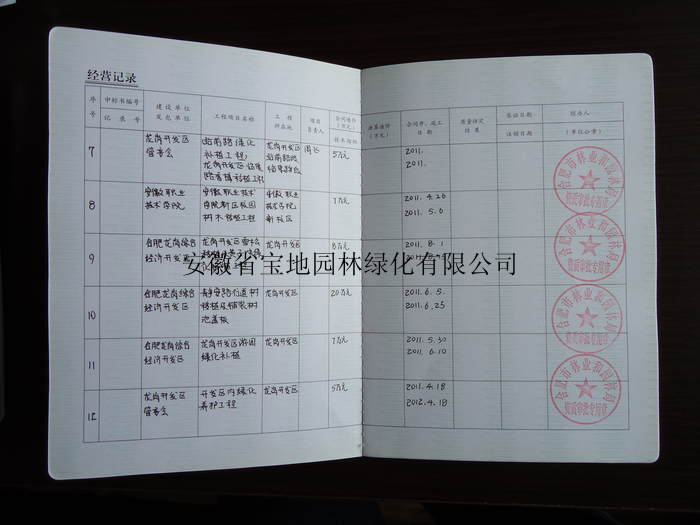 经营记录
序号
中标书编号
记录号
建设单位
发包单位
工程项目名称
工程
所在地
项目
负责人
合同造价
(万元)
技术指标
决算造价
(万元)
合同开、竣工
日期
质量评定
结果
签证日期
注销日期
经办人
(单位公章)
7
龙岗开发区
管委会
站前路绿化
补植工程,
龙岗开发区
5万元
2011.
2011.
8
安徽职业
技术学院
安徽职业技术
学院新区校园
树木移植工程
安徽职业
技术学院
新校区
7万元
2011.4.26
2011.5.6
9
合肥龙岗综合
经济开发区
龙岗开发区
8万元
2011.8.1
安徽省宝地园林绿化有限公司
10
合肥龙岗综合
经济开发区
静安路行道树
池盖板
龙岗开发区
20万元
2011.6.5.
2011.6.25
11
合肥龙岗综合
经济开发区
龙岗开发区游园
绿化补植
龙岗开发区
7万元
2011.5.30
2011.6.10
12
龙岗开发区
管委会
开发区内绿化
养护工程
龙岗开发区
5万元
2011.4.18
2012.4.18
合肥市林业和园林局
资质审批专用章
合肥市林业和园林局
资质审批专用章
合肥市林业和园林局
资质审批专用章
合肥市林业和园林局
资质审批专用章